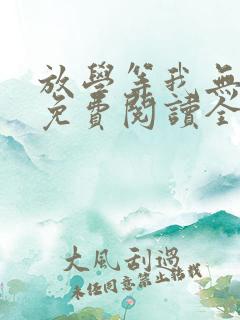 放學等我無
免費閱讀全
大風刮過
未经同意禁止转载